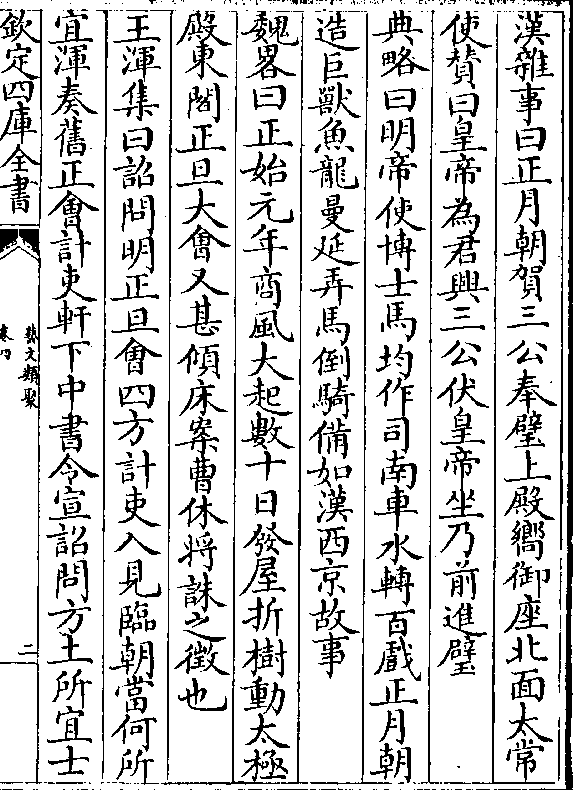 漢雜事曰正月朝賀三公奉璧上殿嚮御座北面太常
使賛曰皇帝為君興三公伏皇帝坐乃前進璧
典略曰明帝使博士馬均作司南車水轉百戲正月朝
造巨獸魚龍曼延弄馬倒騎備如漢西京故事
魏畧曰正始元年商風大起數十日發屋折樹動太極
殿東閤正旦大會又甚傾床案曹休將誅之徴也
王渾集曰詔問明正旦會四方計吏入見臨朝當何所
宜渾奏舊正會計吏軒下中書令宣詔問方土所宜士
欽定四庫全書
藝文類聚
卷四
二